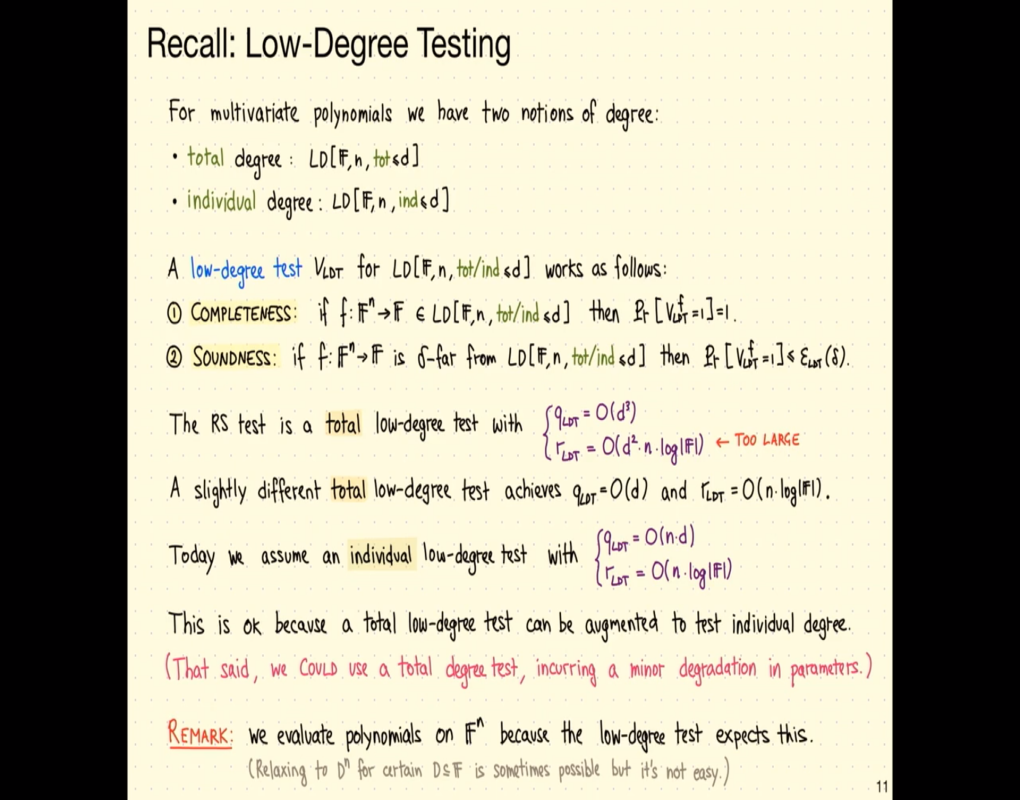 Recall: Low-Degree Testing
For multivariate polynomials we have two notions of degree:
• total degree: LD[𝔽,n,tot≤d]
• individual degree: LD[𝔽,n,ind≤d]
A low-degree test V_LDT for LD[𝔽,n,tot/ind ≤d] works as follows:
① COMPLETENESS: if f: 𝔽ⁿ→𝔽 ∈ LD[𝔽,n,tot/ind ≤d] then Pr[V_LDT^f=1]=1.
② SOUNDNESS: if f: 𝔽ⁿ→𝔽 is δ-far from LD[𝔽,n,tot/ind ≤d] then Pr[V_LDT^f=1] ≤ ε_LDT(δ).
The RS test is a total low-degree test with { q_LDT = O(d³)
r_LDT = O(d²·n·log|𝔽|) ← TOO LARGE
A slightly different total low-degree test achieves q_LDT=O(d) and r_LDT=O(n·log|𝔽|).
Today we assume an individual low-degree test with { q_LDT = O(n·d)
r_LDT = O(n·log|𝔽|)
This is ok because a total low-degree test can be augmented to test individual degree.
(That said, we COULD use a total degree test, incurring a minor degradation in parameters.)
REMARK: we evaluate polynomials on 𝔽ⁿ because the low-degree test expects this.
(Relaxing to Dⁿ for certain D⊆𝔽 is sometimes possible but it's not easy.)
11